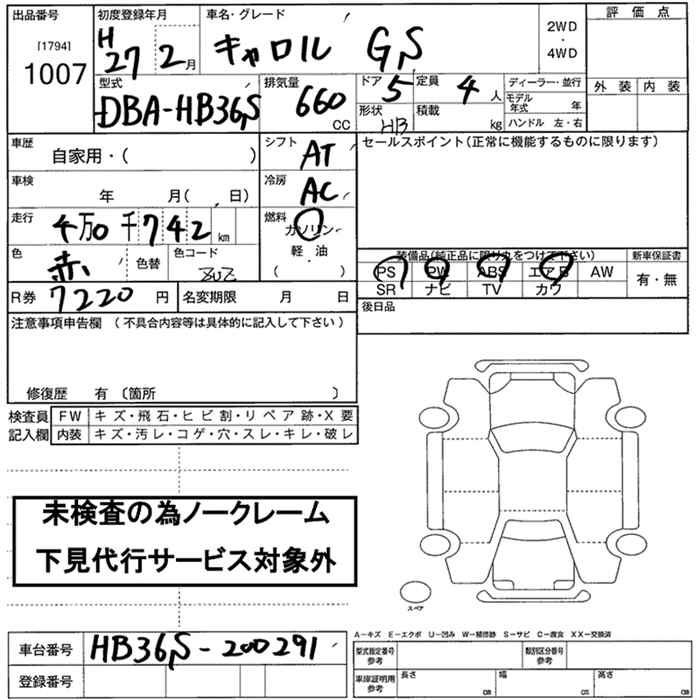 出品番号 初度登録年月 車名・グレード 評価点
[1794] H キャロル GS 2WD
1007 27 2月 ・ 4WD
型式 排気量 ドア 定員 ディーラー・並行 外装 内装
DBA-HB36S 660 CC 5 4人 モデル年式 年
形状 HB 積載 kg ハンドル 左・右
車歴 シフト セールスポイント(正常に機能するものに限ります)
自家用・( ) AT
車検 冷房
年 月( , 日) AC
走行 燃料
4万0千742km ガソリン
色 色コード 軽・油 装備品(純正品に限り丸をつけて下さい) 新車保証書
赤 色替 ( ・ ) PS PW ABS エアB AW 有・無
R券 7220円 名変期限 月 日 SR ナビ TV カワ
後日品
注意事項申告欄 (不具合内容等は具体的に記入して下さい)
修復歴 有 〔箇所 〕
検査員 FW キズ・飛石・ヒビ割・リペア跡・X要
記入欄 内装 キズ・汚レ・コゲ・穴・スレ・キレ・破レ
未検査の為ノークレーム
下見代行サービス対象外
スペア
A-キズ E-エクボ U-凹み W-補修跡 S-サビ C-腐食 XX-交換済
車台番号 HB36S-200291 型式指定番号 参考 類別区分番号 参考
登録番号 車庫証明用 参考 長さ cm 幅 cm 高さ cm